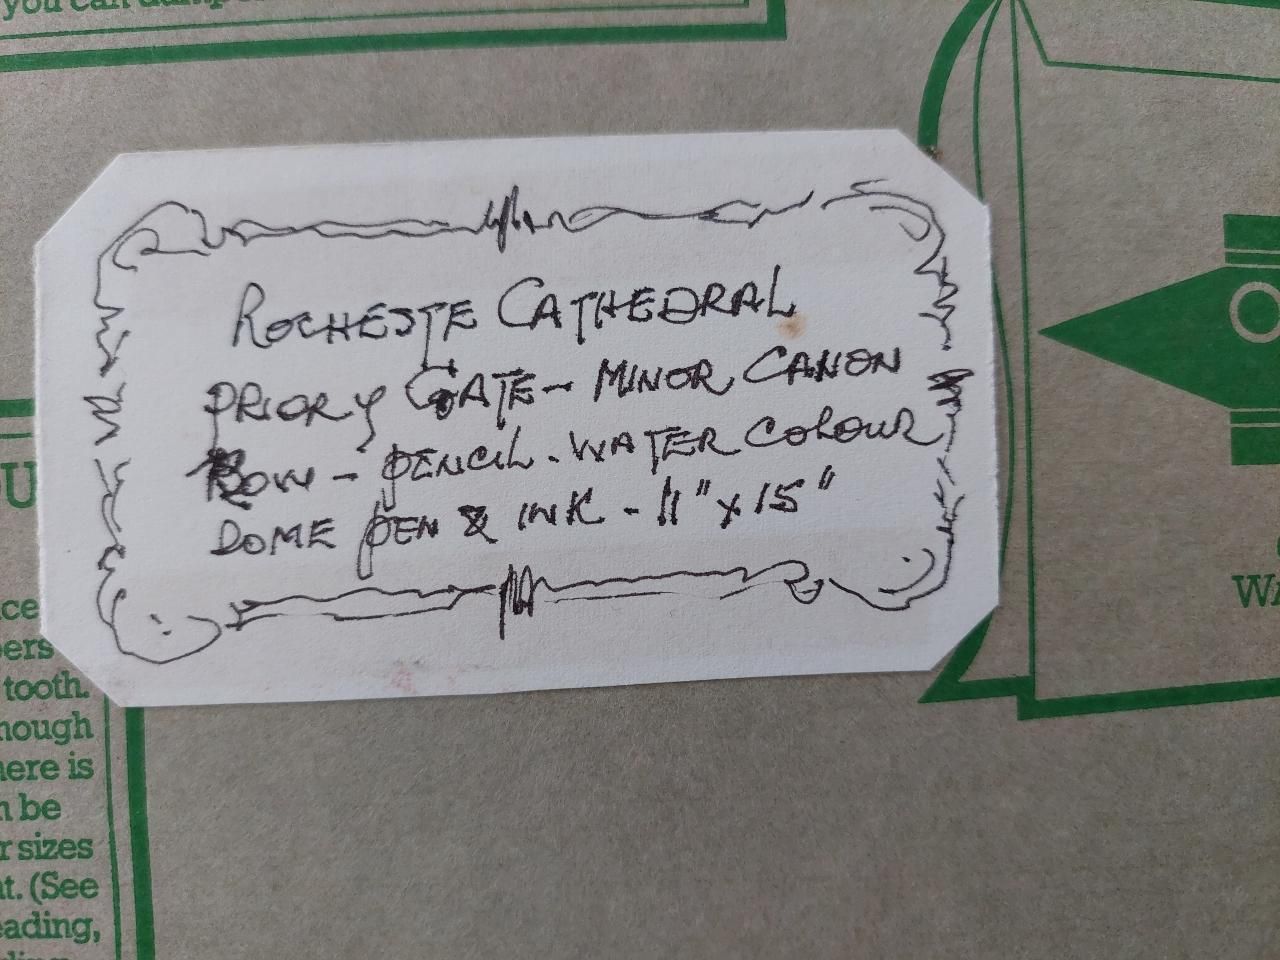 you can dampe
ROCHESTE CATHEDRAL
PRIORY GATE - MINOR CANON
ROW - PENCIL. WATER COLOUR
DOME PEN & INK - 11" x 15"
OU
ce
pers
tooth.
hough
here is
n be
r sizes
nt. (See
eading,
WA